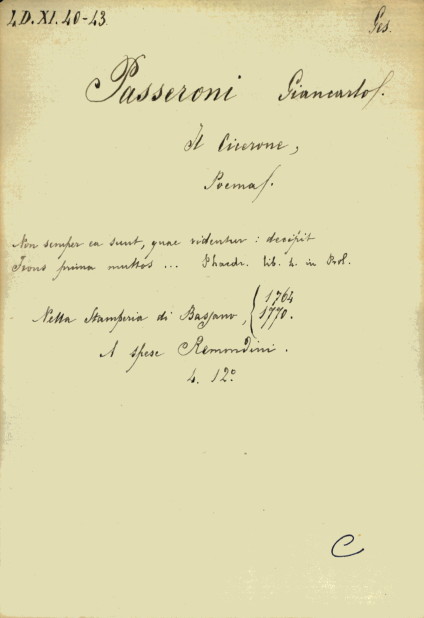 4.D.XI.40-43.
Ges.
Passeroni Giancarlo.
Il Cicerone,
Poema.
Non semper ea sunt, quae videntur: decipit
Frons prima multos ... Phaedr. lib. 4. in Prol.
Nella Stamperia di Bassano, { 1764
1770.
A spese Remondini.
4. 12°
C